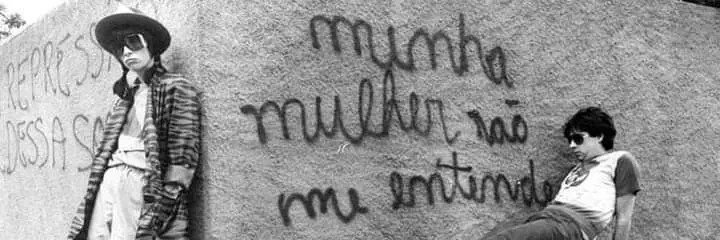 REPRESS
DESSA SO
minha
mulher não
me entende